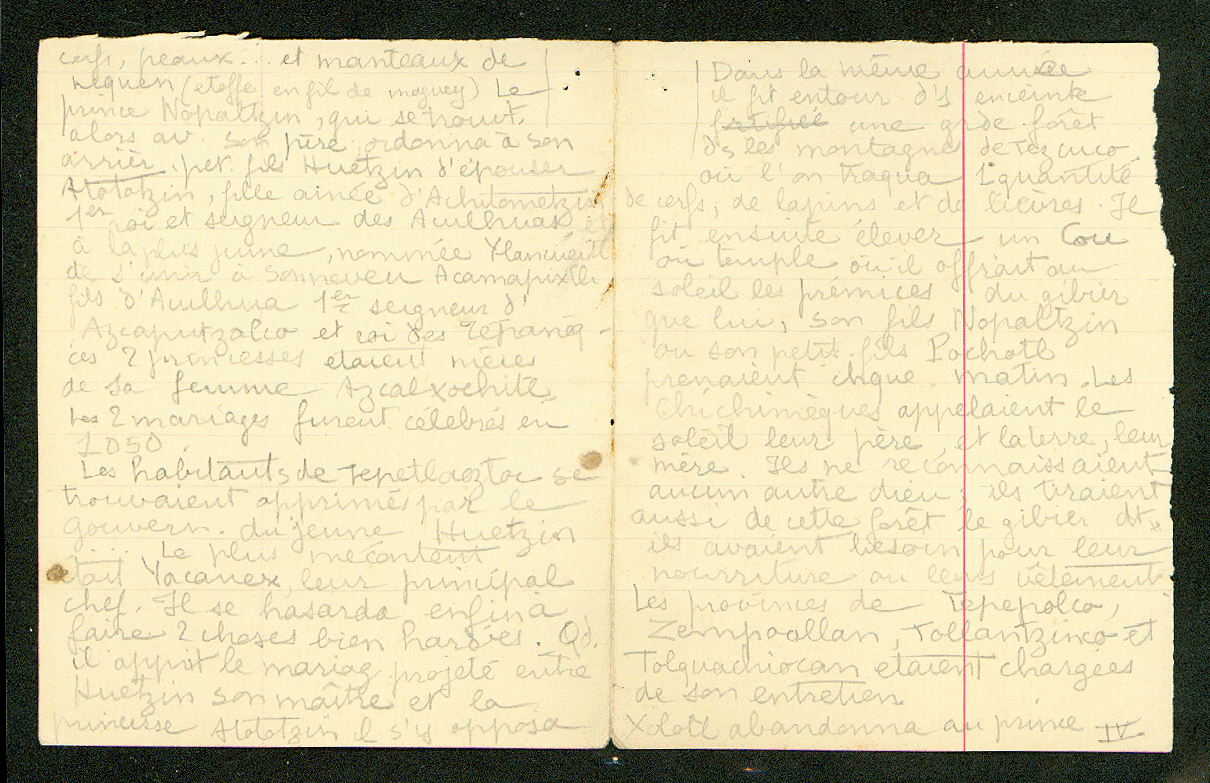 cerfs, peaux... et manteaux de
nequen (etoffe en fil de maguey) Le
prince Nopaltzin, qui se trouvt.
alors av. son père, ordonna à son
arrièr. pet. fils Huetzin d'épouser
Atototzin, fille ainée d'Achitometzin
1er roi et seigneur des Aculhuas, et
à la plus jeune, nommée Ylancueitl
de s'unir à son neveu Acamapixtli
fils d'Aculhua 1er seigneur d'
Azcaputzalco et roi des Tepaneq -
ces 2 princesses etaient nièces
de sa femme Azcalxochitl,
Les 2 mariages furent célebrés en
1050.
Les habitants de Tepetlaoztoc se
trouvaient opprimés par le
gouvern. du jeune Huetzin
..... Le plus mecontent
était Yacanex, leur principal
chef. Il se hasarda enfin à
faire 2 choses bien hardies. Qd.
il apprit le mariag. projeté entre
Huetzin son maître et la
princesse Atototzin il s'y opposa
Dans la même année
il fit entour. d'1 enceinte
fortifiée une grde forêt
ds les montagnes de Tezcuco
où l'on traqua 1 quantité
de cerfs, de lapins et de lièvres. Il
fit ensuite élever un Cou
ou temple où il offrait au
soleil les prémices du gibier
que lui, son fils Nopaltzin
ou son petit fils Pochotl
prenaient chque matin. Les
Chichimèques appelaient le
soleil leur père, et la terre, leur
mère. Ils ne reconnaissaient
aucun autre dieu ; ils tiraient
aussi de cette forêt le gibier dt
ils avaient besoin pour leur
nourriture ou leurs vêtements
Les provinces de Tepepolco,
Zempoallan, Tollantzinco et
Tolquachiocan etaient chargées
de son entretien
Xolotl abandonna au prince IV